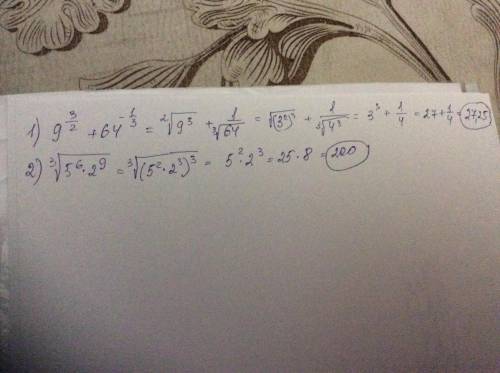 1) 9^{3/2} + 64^{-1/3} = ²√(9³) + 1/∛64 = √((3²)³) + 1/∛(4³) = 3³ + 1/4 = 27 + 1/4 = 27,25
2) ∛(5⁶·2⁹) = ∛((5²·2³)³) = 5²·2³ = 25·8 = 200